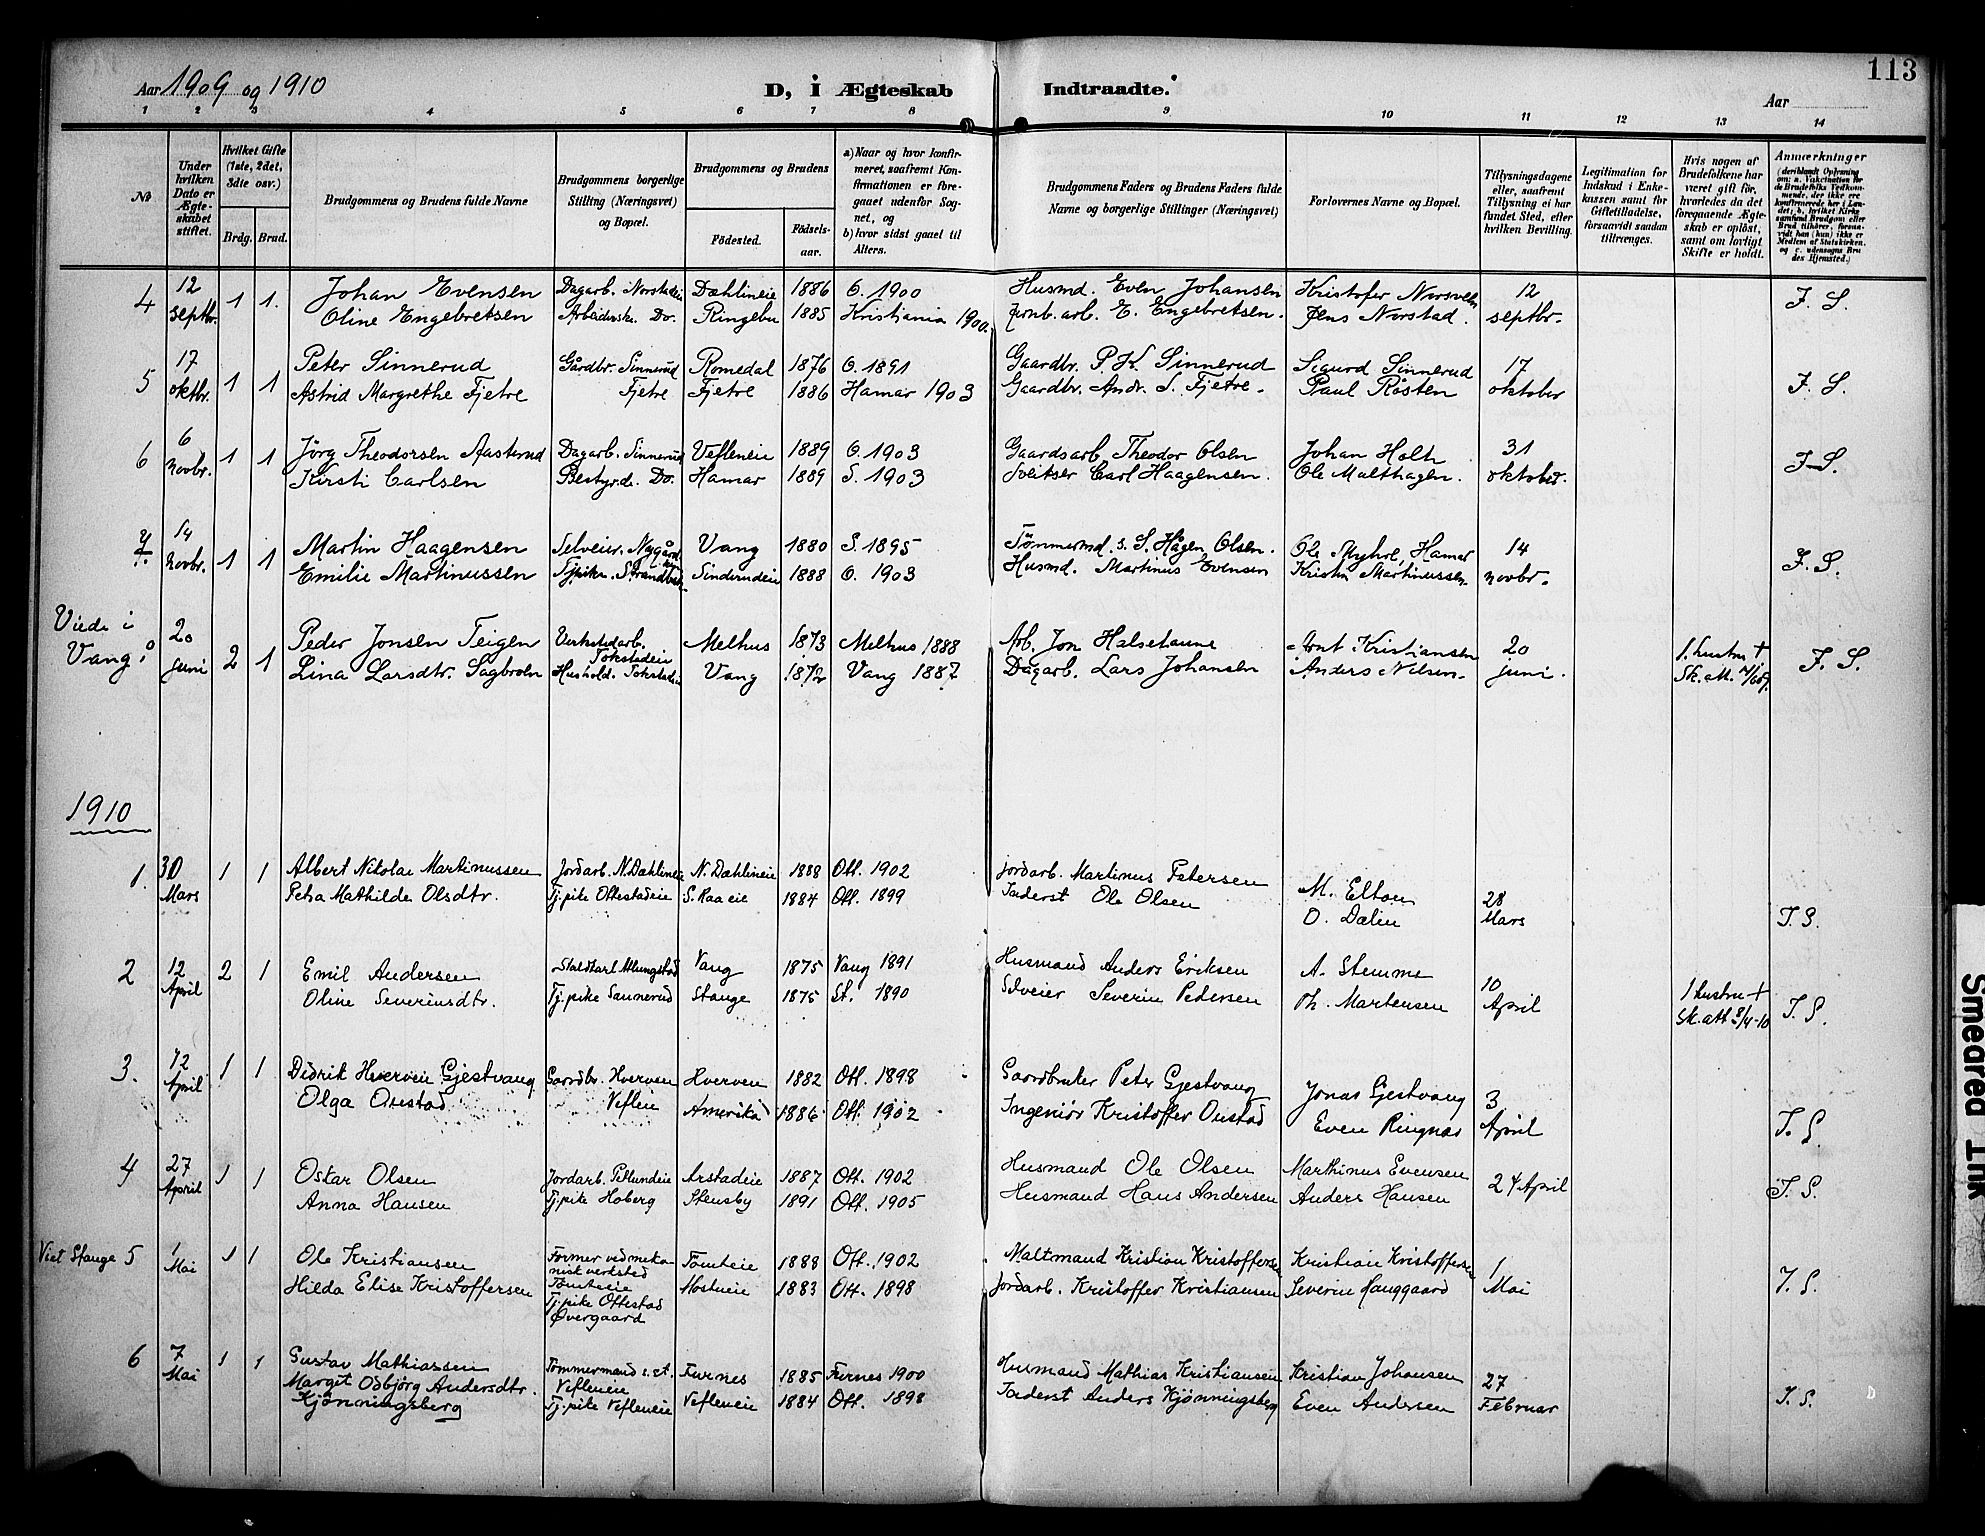 113
Aar 1909 og 1910
D, i Ægteskab Indtraadte.
Aar
1 2 3 4 5 6 7 8 9 10 11 12 13 14
No
Under hvilken Dato er Ægteskabet stiftet.
Hvilket Gifte (1ste, 2det, 3dte osv.)
Brdg. Brud.
Brudgommens og Brudens fulde Navne
Brudgommens borgerlige Stilling (Næringsvei) og Bopæl.
Brudgommens og Brudens
Fødested. Fødselsaar.
a) Naar og hvor konfirmeret, saafremt Konfirmationen er foregaaet udenfor Sognet, og
b) hvor sidst gaaet til Alters.
Brudgommens Faders og Brudens Faders fulde Navne og borgerlige Stillinger (Næringsvei)
Forlovernes Navne og Bopæl.
Tillysningsdagene eller, saafremt Tillysning ei har fundet Sted, efter hvilken Bevilling.
Legitimation for Indskud i Enkekassen samt for Giftetilladelse, forsaavidt saadan tiltrænges.
Hvis nogen af Brudefolkene har været gift før, hvorledes da det foregaaende Ægteskab er opløst, samt om lovligt Skifte er holdt.
Anmærkninger
4 12 septbr. 1 1. Johan Evensen Dagarb. Norstadeie Dæhlineie 1886 O. 1900 Husmd. Even Johansen Kristofer Norsveen 12 septbr. J. S.
Oline Engebretsen Arbeiderske Do. Ringebu 1885 Kristiania 1900. Jernb. arb. E. Engebretsen. Jens Norstad.
5 17 oktbr. 1 1 Peter Sinnerud Gårdbr. Sinnerud Romedal 1876 O. 1891 Gaardbr. P. K. Sinnerud Sigurd Sinnerud 17 oktober J. S.
Astrid Margrethe Fjetre Fjetre Fjetre 1886 Hamar 1903 Gaardbr. Andr. S. Fjetre. Paul Røsten
6 6 novbr. 1 1 Jörg Theodorsen Aasterud Dagarb. Sinnerud Vefleneie 1889 O. 1903 Gaardsarb. Theodor Olsen Johan Holth 31 oktober. J. S.
Kirsti Carlsen Bestyr.de. Do. Hamar 1889 S. 1903 Sveitser Carl Haagensen. Ole Malthagen.
7. 14 novbr. 1 1 Martin Haagensen Selveier. Nygård Vang 1880 S. 1895 Tømmermd. s. S. Hågen Olsen. Ole Myhre, Hamar 14 novbr. J. S.
Emilie Martinussen Tjpike. Sinderudeie 1888 O. 1903 Husmd. Martinus Evensen Kristin Martinussen
Viede i Vang: 20 juni 2 1 Peder Jonsen Teigen Verkstedarb. Tokstadeie Melhus 1873 Melhus 1888 Arb. Jon Halsetaune Arnt Kristiansen 20 juni. 1. hustru † J. S.
Lina Larsdtr. Sagbroen Hushold. Tokstadeie Vang 1872 Vang 1887 Dagarb. Lars Johansen Anders Nilsen. Sk. att.
1910
1. 30 Mars 1 1 Albert Nikolai Martinussen Jordarb. N. Dæhlineie N. Dæhlineie 1888 Ott. 1902 Jordarb. Martinus Petersen M. Elton 28 Mars J. S.
Petra Mathilde Olsdtr. Tj. pike Ottestadeie S. Raaeie 1884 Ott. 1899 Inderst Ole Olsen O. Dælin
2 12 April 2 1 Emil Andersen Staldkarl Atlungstad Vang 1875 Vang 1891 Husmand Anders Eriksen A. Stemme 10 April 1 hustru † J. S.
Oline Severinsdtr. Tj. pike Sannerud Stange 1875 St. 1890 Selveier Severin Pedersen Th. Martensen Sk. att 8/4-10
3. 12 April 1 1 Didrik Hverven Gjestvang Gaardbr. Hverven Hverven 1882 Ott. 1898 Gaardbruker Peter Gjestvang Jonas Gjestvang 3 April J. S.
Olga Onstad Veflein Amerika 1886 Ott. 1902 Ingeniör Kristoffer Onstad Even Ringnes
4 27 April 1 1 Oskar Olsen Jordarb. Petlundeie Arstadeie 1887 Ott. 1902 Husmand Ole Olsen Marthinus Evensen 24 April J. S.
Anna Hansen Tj. pike Hoberg Stensby 1891 Ott. 1905 Husmand Hans Andersen Anders Hansen
Viet Stange 5 1 Mai 1 1 Ole Kristiansen Former ved mekanisk verksted Tomteie Tomteie 1888 Ott. 1902 Maltmand Kristian Kristoffersen Kristian Kristoffersen 1 Mai J. S.
Hilda Elise Kristoffersen Tj. pike Ottestad Övergaard Mostueie 1883 Ott. 1898 Jordarb. Kristoffer Kristiansen Severin Hauggaard
6 7 Mai 1 1 Gustav Mathiassen Tömmermand s. st. Vefleneie Furnes 1885 Furnes 1900 Husmand Mathias Kristiansen Kristian Johansen 27 Februar J. S.
Margit Odbjörg Andersdtr. Kjönningsberg Tj. pike Vefleneie Vefleneie 1884 Ott. 1898 Inderst Anders Kjönningsberg Even Andersen
Smeared Ink